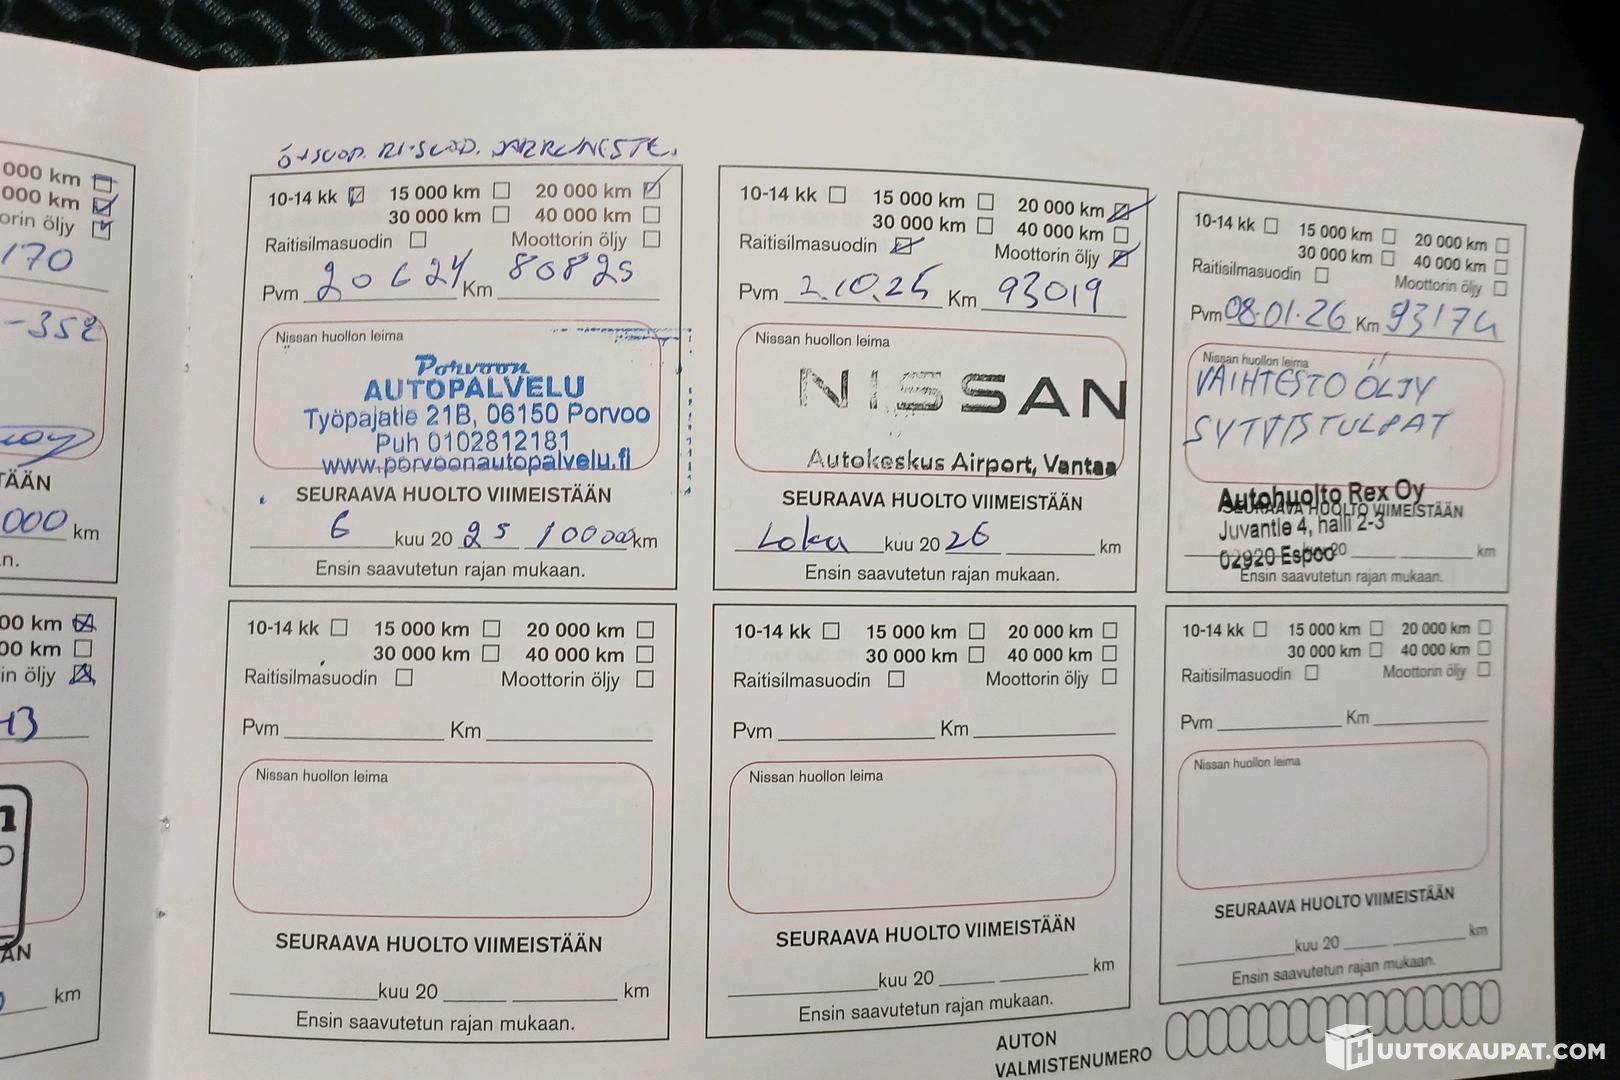 000 km
000 km
orin öljy
170
-352
TÄÄN
000 km
n.
00 km
00 km
in öljy
13
n
O
ÄN
km
Ö+SUOD. RI-SUOD. JARRUNESTE.
10-14 kk 15 000 km 20 000 km
30 000 km 40 000 km
Raitisilmasuodin Moottorin öljy
Pvm 20 6 24 Km 80825
Nissan huollon leima
Porvoon
AUTOPALVELU
Työpajatie 21B, 06150 Porvoo
Puh 0102812181
www.porvoonautopalvelu.fi
SEURAAVA HUOLTO VIIMEISTÄÄN
6 kuu 20 25 100000 km
Ensin saavutetun rajan mukaan.
10-14 kk 15 000 km 20 000 km
30 000 km 40 000 km
Raitisilmasuodin Moottorin öljy
Pvm 2.10.25 Km 93019
Nissan huollon leima
NISSAN
Autokeskus Airport, Vantaa
SEURAAVA HUOLTO VIIMEISTÄÄN
Loka kuu 20 26 km
Ensin saavutetun rajan mukaan.
10-14 kk 15 000 km 20 000 km
30 000 km 40 000 km
Raitisilmasuodin Moottorin öljy
Pvm 08.01.26 Km 93174
Nissan huollon leima
VAIHTESTO ÖLJY
SYTYTISTULPAT
Autohuolto Rex Oy
SEURAAVA HUOLTO VIIMEISTÄÄN
Juvantie 4, halli 2-3
02920 Espoo
kuu 20 km
Ensin saavutetun rajan mukaan.
10-14 kk 15 000 km 20 000 km
30 000 km 40 000 km
Raitisilmasuodin Moottorin öljy
Pvm Km
Nissan huollon leima
SEURAAVA HUOLTO VIIMEISTÄÄN
kuu 20 km
Ensin saavutetun rajan mukaan.
10-14 kk 15 000 km 20 000 km
30 000 km 40 000 km
Raitisilmasuodin Moottorin öljy
Pvm Km
Nissan huollon leima
SEURAAVA HUOLTO VIIMEISTÄÄN
kuu 20 km
Ensin saavutetun rajan mukaan.
10-14 kk 15 000 km 20 000 km
30 000 km 40 000 km
Raitisilmasuodin Moottorin öljy
Pvm Km
Nissan huollon leima
SEURAAVA HUOLTO VIIMEISTÄÄN
kuu 20 km
Ensin saavutetun rajan mukaan.
AUTON
VALMISTENUMERO
HUUTOKAUPAT.COM